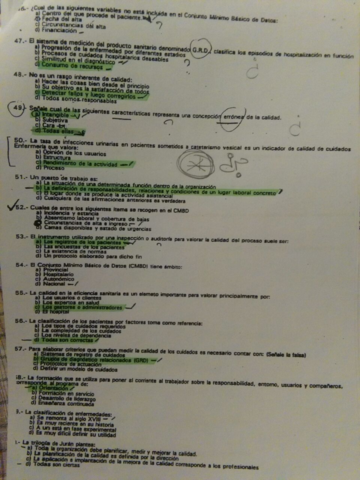 46.- ¿Cual de las siguientes variables no está incluida en el Conjunto Mínimo Básico de Datos:
a) Centro del que procede el paciente
b) Fecha del alta
c) Circunstancias del alta
d) Financiación
47.- El sistema de medición del producto sanitario denominado G.R.D. clasifica los episodios de hospitalización en función
a) Progresión de la enfermedad por diferentes estadios
b) Procesos de cuidados hospitalarios deseables
c) Similitud en el diagnóstico
d) Consumo de recursos
48.- No es un rasgo inherente de calidad:
a) Hacer las cosas bien desde el principio
b) Su objetivo es la satisfacción de todos
c) Detectar fallos y luego corregirlos
d) Todos somos responsables
49.- Señale cual de las siguientes características representa una concepción errónea de la calidad.
a) Intangible
b) Subjetiva
c) Cara
d) Todas ellas
50.- La tasa de infecciones urinarias en pacientes sometidos a cateterismo vesical es un indicador de calidad de cuidados
Enfermería que valora:
a) Opinión de los usuarios
b) Estructura
c) Rendimiento de la actividad
d) Proceso
51.- Un puesto de trabajo es:
a) La situación de una determinada función dentro de la organización
b) La definición de responsabilidades, relaciones y condiciones de un lugar laboral concreto
c) El lugar donde se produce la actividad asistencial
d) Cualquiera de las afirmaciones anteriores es verdadera
52.- Cuales de entre los siguientes items se recogen en el CMBD
a) Incidencia y estancia
b) Absentismo laboral y cobertura de bajas
c) Circunstancias de alta e ingreso
d) Camas disponibles y estado de urgencias
53.- El instrumento utilizado por una inspección o auditoría para valorar la calidad del proceso suele ser:
a) Los registros de los pacientes
b) Las encuestas de los pacientes
c) La existencia de normas
d) Un protocolo elaborado para dicho fin
54.- El Conjunto Mínimo Básico de Datos (CMBD) tiene ámbito:
a) Provincial
b) Hospitalario
c) Autonómico
d) Nacional
55.- La calidad en la eficiencia sanitaria es un elemento importante para valorar principalmente por:
a) Los usuarios o clientes
b) Los expertos en salud
c) Los gestores o administradores
d) El hospital
56.- La clasificación de los pacientes por factores toma como referencia:
a) Los tipos de cuidados requeridos
b) La complejidad de los cuidados
c) Los niveles de dependencia
d) Todas son correctas
57.- Para elaborar criterios que puedan medir la calidad de los cuidados es necesario contar con: (Señale la falsa)
a) Sistemas de registro de cuidados
b) Grupos de diagnóstico relacionados (GRD)
c) Protocolos de actuación
d) Definir un modelo de cuidados
58.- La formación que se utiliza para poner al corriente al trabajador sobre la responsabilidad, entorno, usuarios y compañeros,
corresponde al programa de:
a) Orientación
b) Formación en servicio
c) Desarrollo de liderazgo
d) Enseñanza continuada
La clasificación de enfermedades:
a) Se remonta al siglo XVIII
b) Es muy reciente en su historia
c) Aún está en fase experimental
d) Es muy difícil definir su utilidad
La trilogía de Jurán plantea:
a) Toda la organización debe planificar, medir y mejorar la calidad.
b) La planificación de la calidad es definida por la dirección
c) La aplicación e implantación de la mejora de la calidad corresponde a los profesionales
d) Todas son ciertas